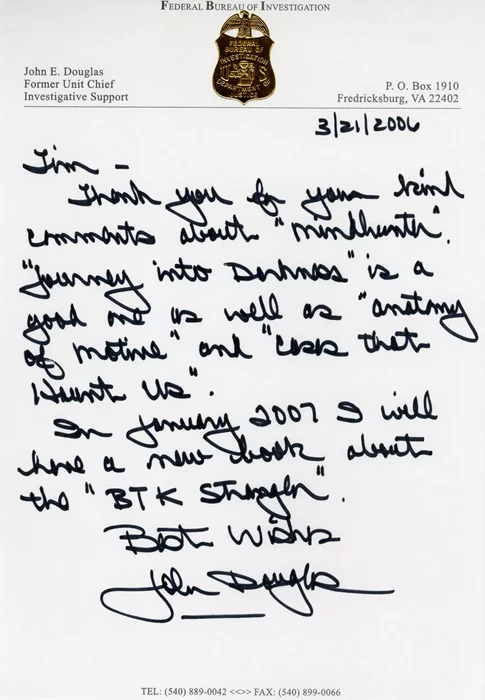 FEDERAL BUREAU OF INVESTIGATION
FEDERAL
BUREAU OF
INVESTIGATION
U S
DEPARTMENT
JUSTICE
John E. Douglas
Former Unit Chief
Investigative Support
P. O. Box 1910
Fredricksburg, VA 22402
3/21/2006
Jim -
Thank you for your kind
comments about "mindhunter".
"Journey into Darkness" is a
good one as well as "anatomy
of motive" and "cases that
Haunt Us".
In January 2007 I will
have a new book about
the "BTK Strangler".
Best Wishes
John Douglas
TEL: (540) 889-0042 <<>> FAX: (540) 899-0066